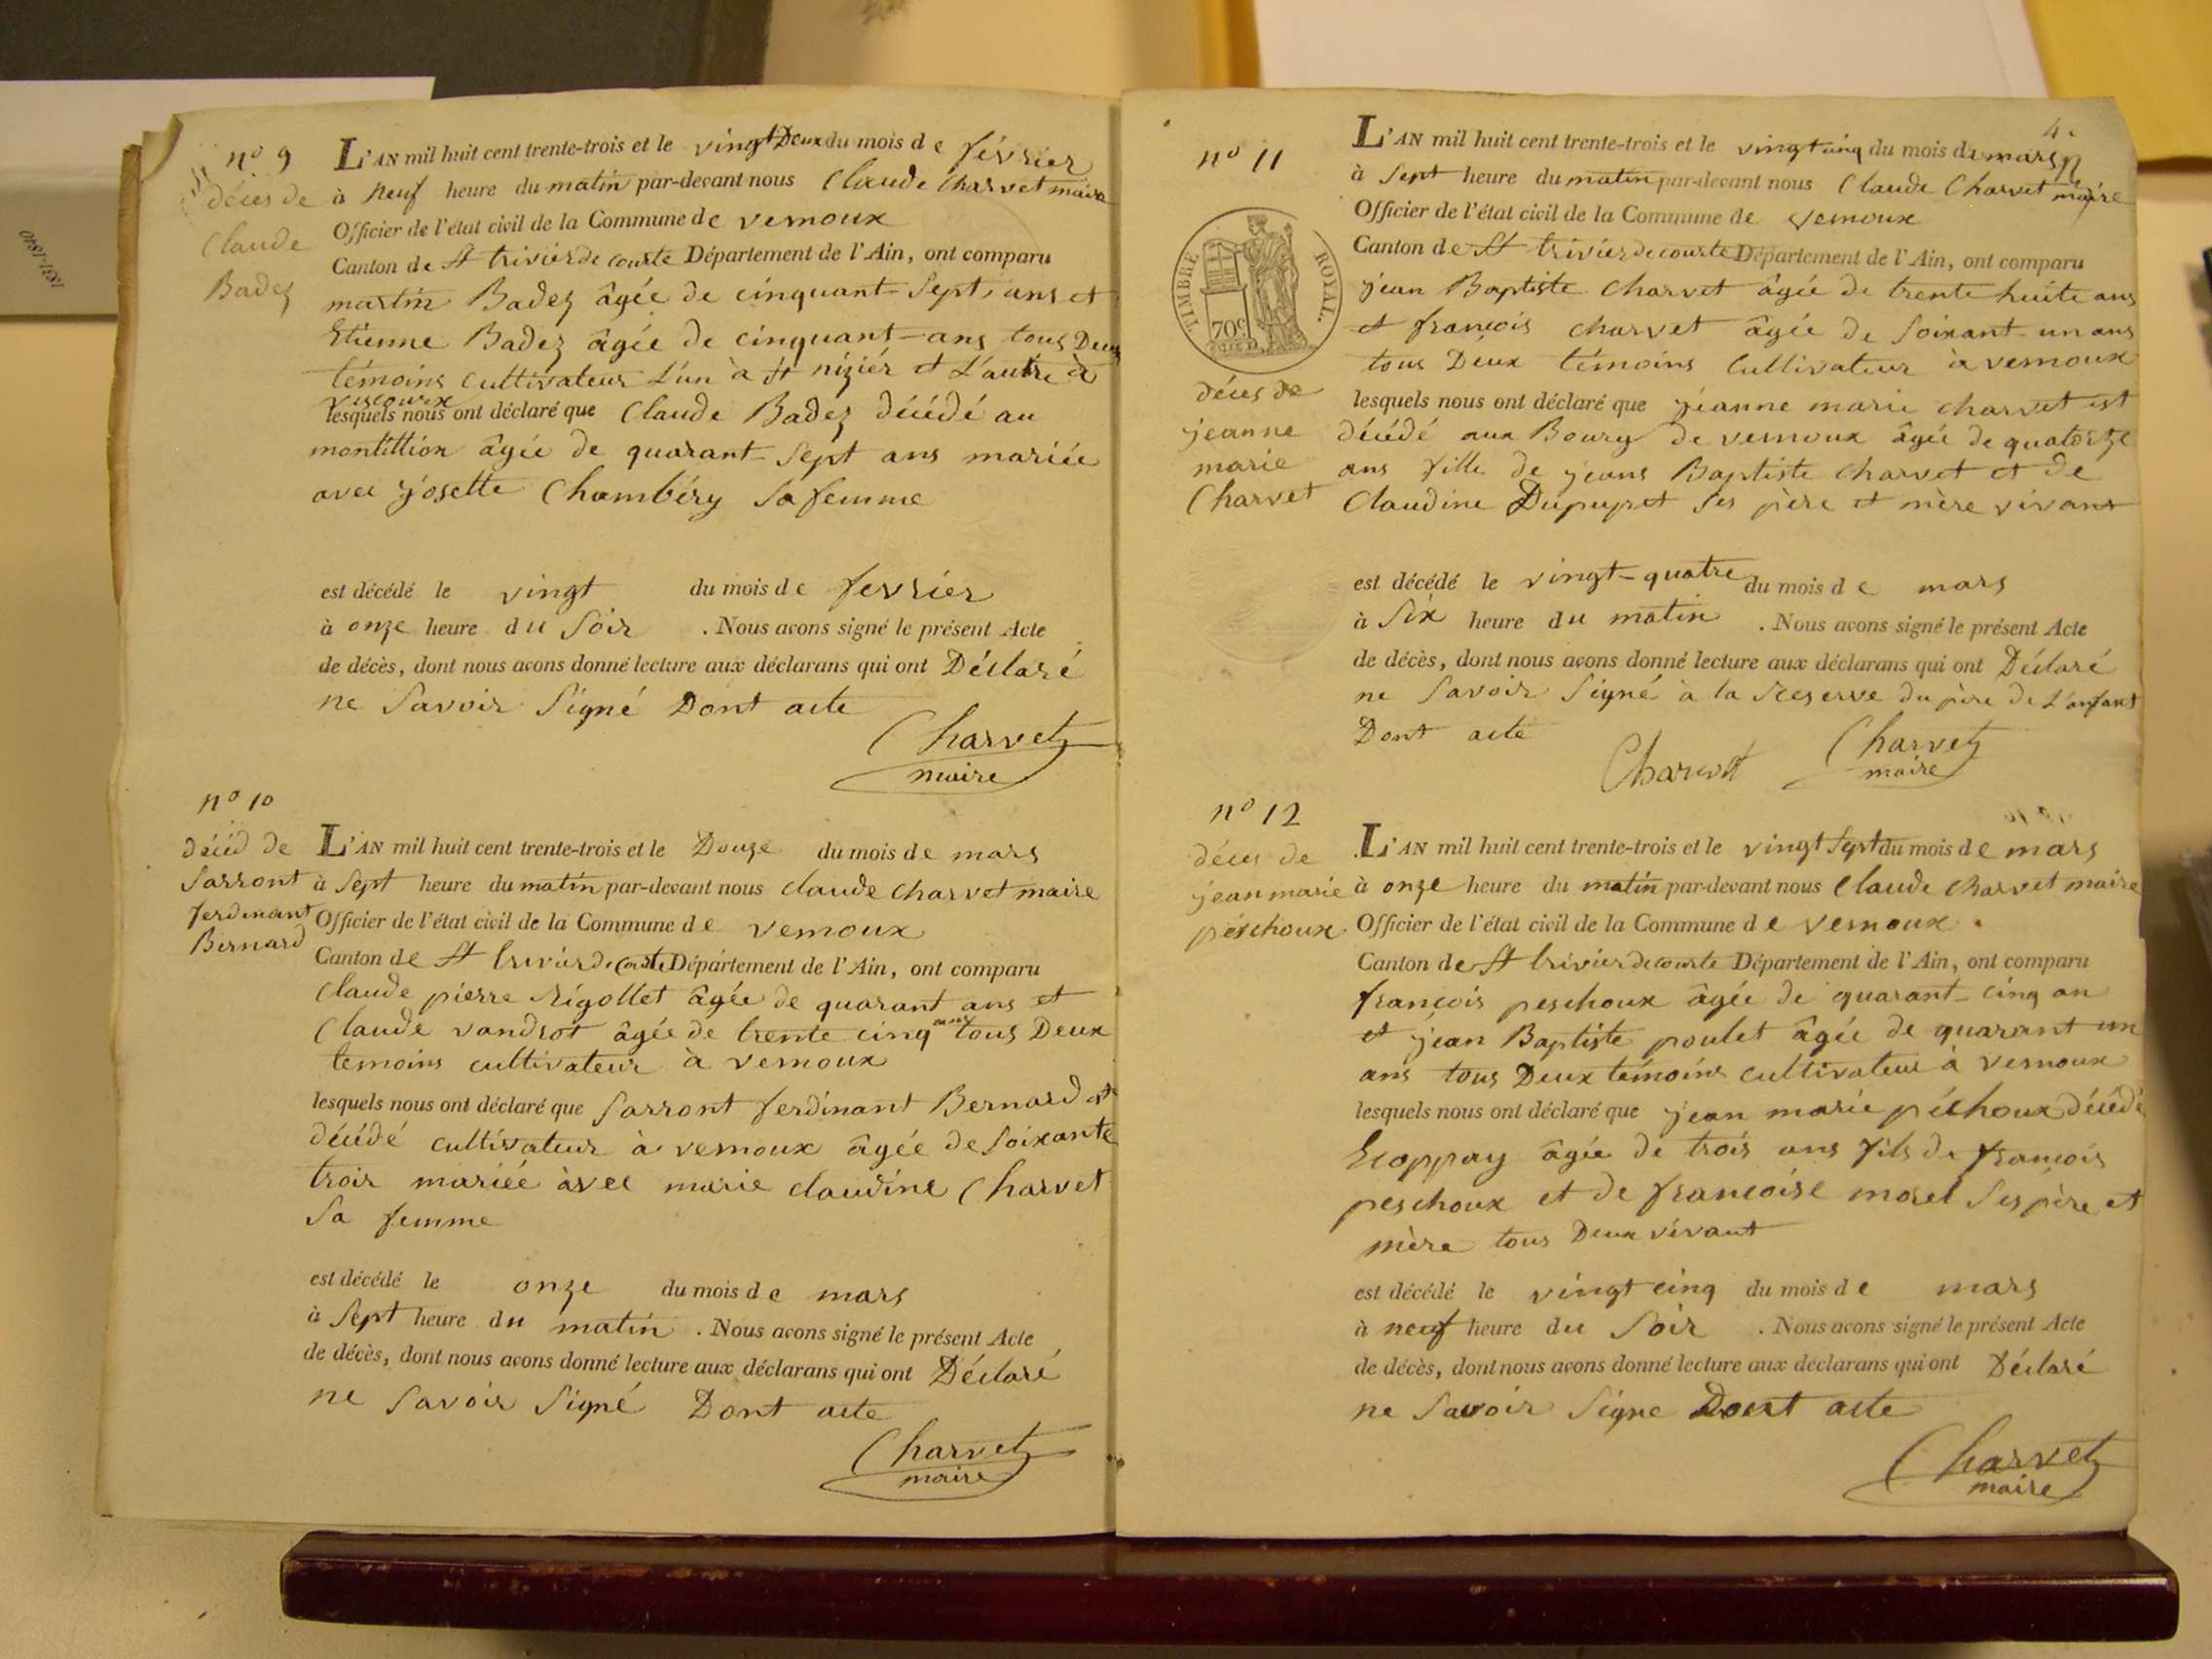 1831-1840
nº 9
décès de
Claude
Badez
L'AN mil huit cent trente-trois et le vingt Deux du mois de février
à neuf heure du matin par-devant nous Claude Charvet maire
Officier de l'état civil de la Commune de vernoux
Canton de St trivier de courte Département de l'Ain, ont comparu
martin Badez âgée de cinquant-sept, ans et
Etienne Badez âgée de cinquant-ans tous Deux
témoins cultivateur L'un à St nizier et L'autre à
vescourx
lesquels nous ont déclaré que Claude Badez décédé au
montittion âgée de quarant-sept ans mariée
avec josette Chambéry sa femme
est décédé le vingt du mois de fevrier
à onze heure du soir . Nous avons signé le présent Acte
de décès, dont nous avons donné lecture aux déclarans qui ont Déclaré
ne savoir signé Dont acte
Charvet
maire
nº 10
décéd de
Sarront
ferdinant
Bernard
L'AN mil huit cent trente-trois et le Douze du mois de mars
à sept heure du matin par-devant nous claude charvet maire
Officier de l'état civil de la Commune de vernoux
Canton de St trivier de courte Département de l'Ain, ont comparu
Claude pierre rigollet âgée de quarant ans et
Claude vandrot âgée de trente cinq ans tous Deux
temoins cultivateur à vernoux
lesquels nous ont déclaré que sarront ferdinant Bernard et
décédé cultivateur à vernoux âgée de soixante
trois mariée àvec marie claudine Charvet
sa femme
est décédé le onze du mois de mars
à sept heure du matin . Nous avons signé le présent Acte
de décès, dont nous avons donné lecture aux déclarans qui ont Déclaré
ne savoir signé Dont acte
Charvet
maire
4.
nº 11
TIMBRE ROYAL.
70c
décès de
jeanne
marie
Charvet
L'AN mil huit cent trente-trois et le vingt cinq du mois de mars
à sept heure du matin par-devant nous Claude Charvet maire
Officier de l'état civil de la Commune de vernoux
Canton de St trivier de courte Département de l'Ain, ont comparu
jean Baptiste charvet âgée de trente huite ans
et francois charvet âgée de soixant-un ans
tous Deux témoins Cultivateur à vernoux
lesquels nous ont déclaré que jeanne marie charvet est
décédé aux Bourg de vernoux âgée de quatorze
ans fille de jeans Baptiste charvet et de
Claudine Dupupet ses père et mère vivant
est décédé le vingt-quatre du mois de mars
à six heure du matin . Nous avons signé le présent Acte
de décès, dont nous avons donné lecture aux déclarans qui ont Déclaré
ne savoir signé à la reserve du père de L'anfant
Dont acte
Charvet Charvet
maire
nº 12
décès de
jean marie
peschoux
L'AN mil huit cent trente-trois et le vingt sept du mois de mars
à onze heure du matin par-devant nous Claude Charvet maire
Officier de l'état civil de la Commune de vernoux.
Canton de St trivier de courte Département de l'Ain, ont comparu
francois peschoux âgée de quarant-cinq an
et jean Baptiste poulet âgée de quarant un
ans tous Deux témoins cultivateur à vernoux
lesquels nous ont déclaré que jean marie péchoux décédé
Ecoppay âgée de trois ans fils de francois
peschoux et de francoise morel ses père et
mère tous Deux vivant
est décédé le vingt cinq du mois de mars
à neuf heure du soir . Nous avons signé le présent Acte
de décès, dont nous avons donné lecture aux déclarans qui ont Déclaré
ne savoir signe Dont acte
Charvet
maire